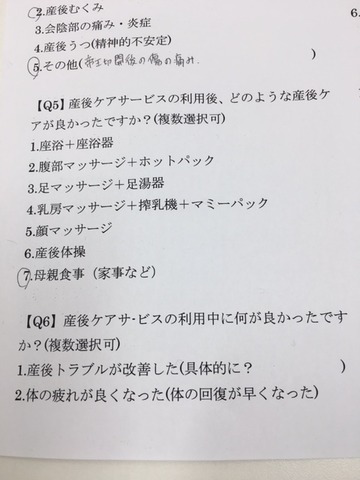 2.産後むくみ
3.会陰部の痛み・炎症
4.産後うつ(精神的不安定)
5.その他(帝王切開後の傷の痛み. )
【Q5】産後ケアサービスの利用後、どのような産後ケ
アが良かったですか?(複数選択可)
1.座浴＋座浴器
2.腹部マッサージ＋ホットパック
3.足マッサージ＋足湯器
4.乳房マッサージ＋搾乳機＋マミーパック
5.顔マッサージ
6.産後体操
7.母親食事（家事など）
【Q6】産後ケアサ-ビスの利用中に何が良かったです
か？(複数選択可)
1.産後トラブルが改善した(具体的に？ )
2.体の疲れが良くなった(体の回復が早くなった)
6.